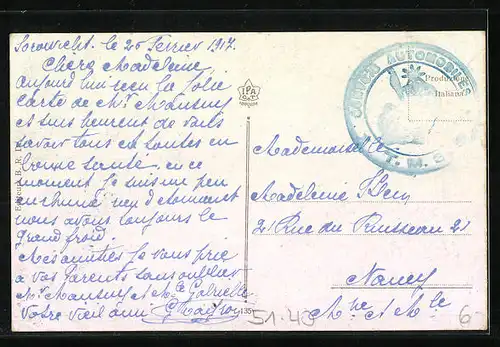 le 20 Février 1917.
Chère Madeleine
Aujourd'hui reçu la jolie
Carte de Mr Mansuy
et suis heureux de vous
savoir tous en toutes en
bonne santé, en ce
moment je suis un peu
enrhumé rien d'étonnant
nous avons toujours le
Grand froid
Mes amitiés je vous prie
a vos Parents sans oublier
Mr Mansuy et Mlle Gabrielle
Votre vieil ami
IPA
CT
AUTOMOBILES
T. M.
Produzione
Italiana
Mademoiselle
Madeleine
21 Rue du Ruisseau 21
Nancy
Mthe et Mlle
135
51-43
6